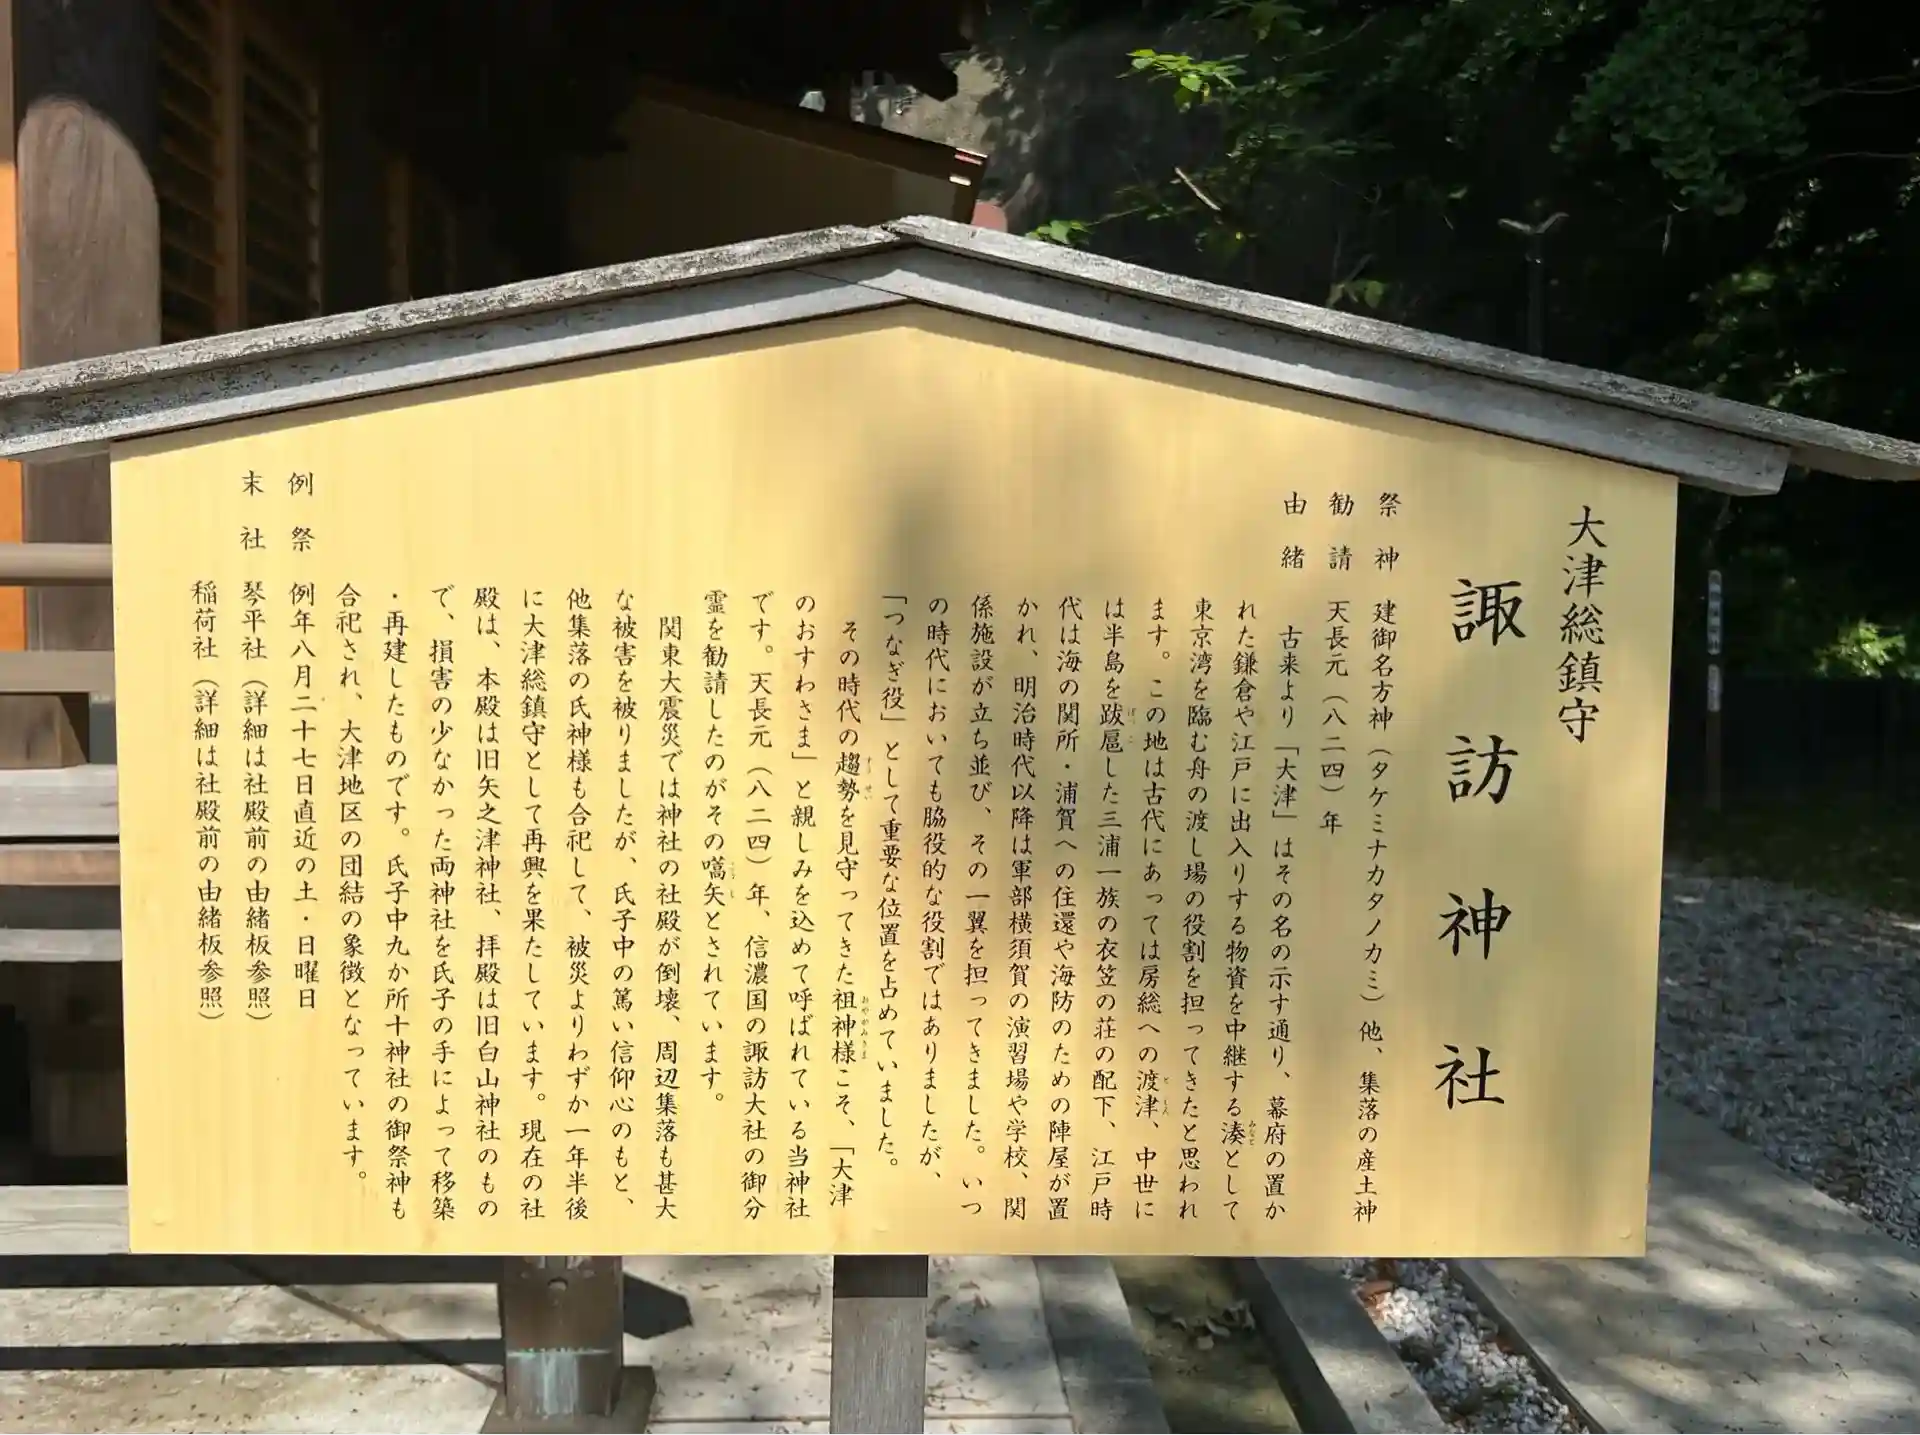 大津総鎮守
諏訪神社
祭神 建御名方神（タケミナカタノカミ）他、集落の産土神
勧請 天長元（八二四）年
由緒 古来より「大津」はその名の示す通り、幕府の置か
れた鎌倉や江戸に出入りする物資を中継する湊として
東京湾を臨む舟の渡し場の役割を担ってきたと思われ
ます。この地は古代にあっては房総への渡津、中世に
は半島を跋扈した三浦一族の衣笠の荘の配下、江戸時
代は海の関所・浦賀への住還や海防のための陣屋が置
かれ、明治時代以降は軍部横須賀の演習場や学校、関
係施設が立ち並び、その一翼を担ってきました。いつ
の時代においても脇役的な役割ではありましたが、
「つなぎ役」として重要な位置を占めていました。
その時代の趨勢を見守ってきた祖神様こそ、「大津
のおすわさま」と親しみを込めて呼ばれている当神社
です。天長元（八二四）年、信濃国の諏訪大社の御分
霊を勧請したのがその嚆矢とされています。
関東大震災では神社の社殿が倒壊、周辺集落も甚大
な被害を被りましたが、氏子中の篤い信仰心のもと、
他集落の氏神様も合祀して、被災よりわずか一年半後
に大津総鎮守として再興を果たしています。現在の社
殿は、本殿は旧矢之津神社、拝殿は旧白山神社のもの
で、損害の少なかった両神社を氏子の手によって移築
・再建したものです。氏子中九か所十神社の御祭神も
合祀され、大津地区の団結の象徴となっています。
例祭 例年八月二十七日直近の土・日曜日
末社 琴平社（詳細は社殿前の由緒板参照）
稲荷社（詳細は社殿前の由緒板参照）